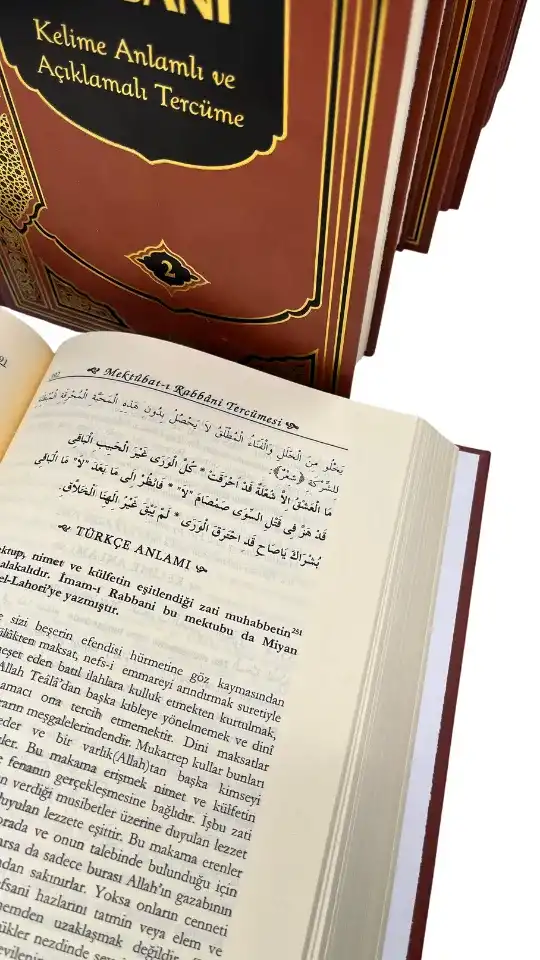 BBANİ
Kelime Anlamlı ve
Açıklamalı Tercüme
2
Mektûbat-ı Rabbâni Tercümesi
يَخْلُو مِنَ الْخَلَلِ وَالْفَنَاءُ الْمُطْلَقُ لَا يَحْصُلُ بِدُونِ هَذِهِ الْمَحَبَّةِ الْمُحْرِقَةِ
لِلشِّرْكَةِ ﴿شِعْرٌ﴾:
مَا الْعِشْقُ إِلاَّ شُعْلَةٌ قَدْ اَحْرَقَتْ * كُلَّ الْوَرَى غَيْرَ الْحَبِيبِ الْبَاقِى
قَدْ هَزَّ فِى قَتْلِ السِّوَى صَمْصَامَ "لَا" * فَانْظُرْ إِلَى مَا بَعْدَ "لَا" مَا الْبَاقِى
بُشْرَاكَ يَاصَاحِ قَدِ احْتَرَقَ الْوَرَى * لَمْ يَبْقَ غَيْرُ اِلَهِنَا الْخَلَّاقِ.
TÜRKÇE ANLAMI
nimet ve külfetin eşitlendiği zati muhabbetin 251
alakalıdır. İmam-ı Rabbani bu mektubu da Miyan
el-Lahori'ye yazmıştır.
sizi beşerin efendisi hürmetine göz kaymasından
maksat, nefs-i emmareyi arındırmak suretiyle
eden batıl ilahlara kulluk etmekten kurtulmak,
Allah Teâlâ'dan başka kıbleye yönelmemek ve dinî
amacı ona tercih etmemektir. Dini maksatlar
meşgalelerindendir. Mukarrep kullar bunları
eder ve bir varlık(Allah)tan başka kimseyi
Bu makama erişmek nimet ve külfetin
fenanın gerçekleşmesine bağlıdır. İşbu zati
verdiği musibetler üzerine duyulan lezzet
duyulan lezzete eşittir. Bu makama erenler
orada ve onun talebinde bulunduğu için
da sadece burası Allah'ın gazabının
sakınırlar. Yoksa onların cenneti
hazlarını tatmin veya elem ve
uzaklaşmak değildir.
nezdinde